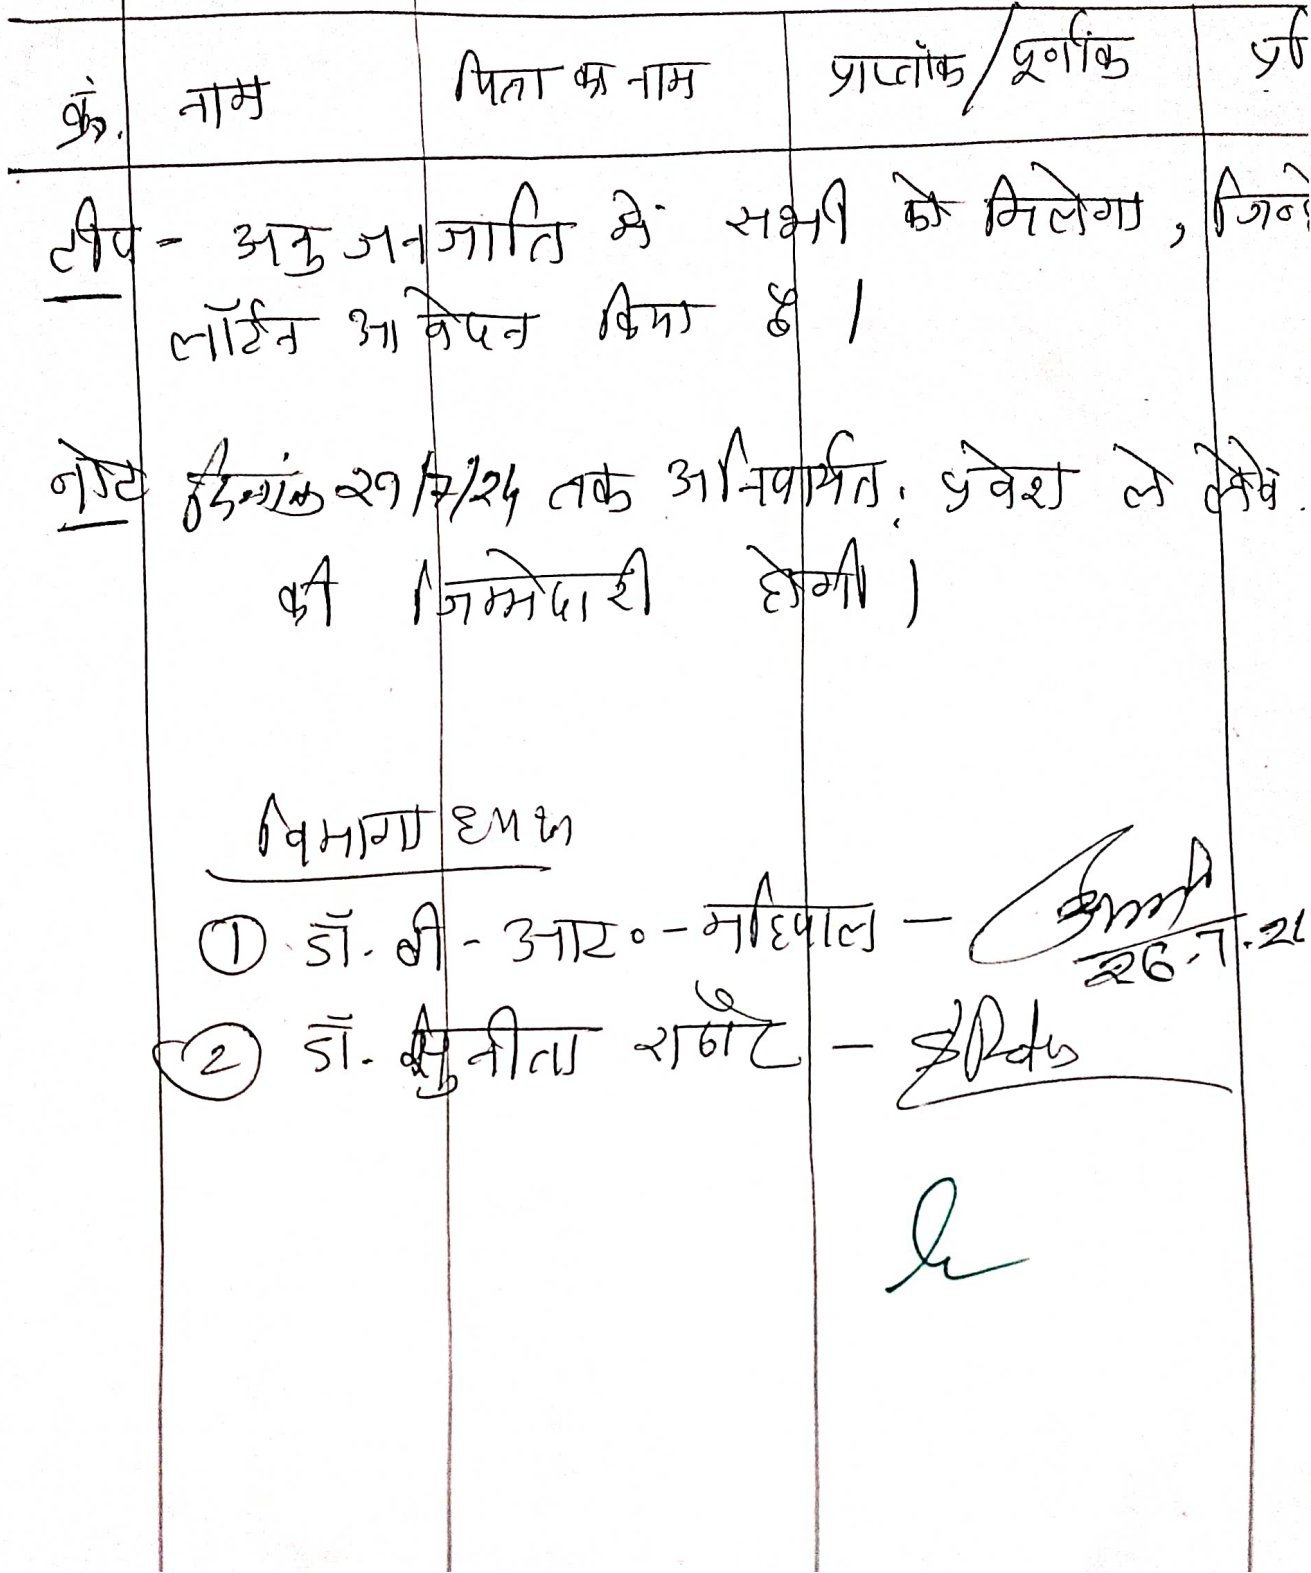 क्रं. नाम पिता का नाम प्राप्तांक/पूर्णांक प्र
टीप - अनु जनजाति में सभी को मिलेगा, जिन
लॉईन आवेदन किया है।
नोट दिनांक 29/7/24 तक अनिवार्यत: प्रवेश ले लेवे.
की जिम्मेदारी होगी।
विभागाध्यक्ष
① डॉ. बी - आर॰ - महिपाल -
26.7.2
② डॉ. सुनीता राठौर -